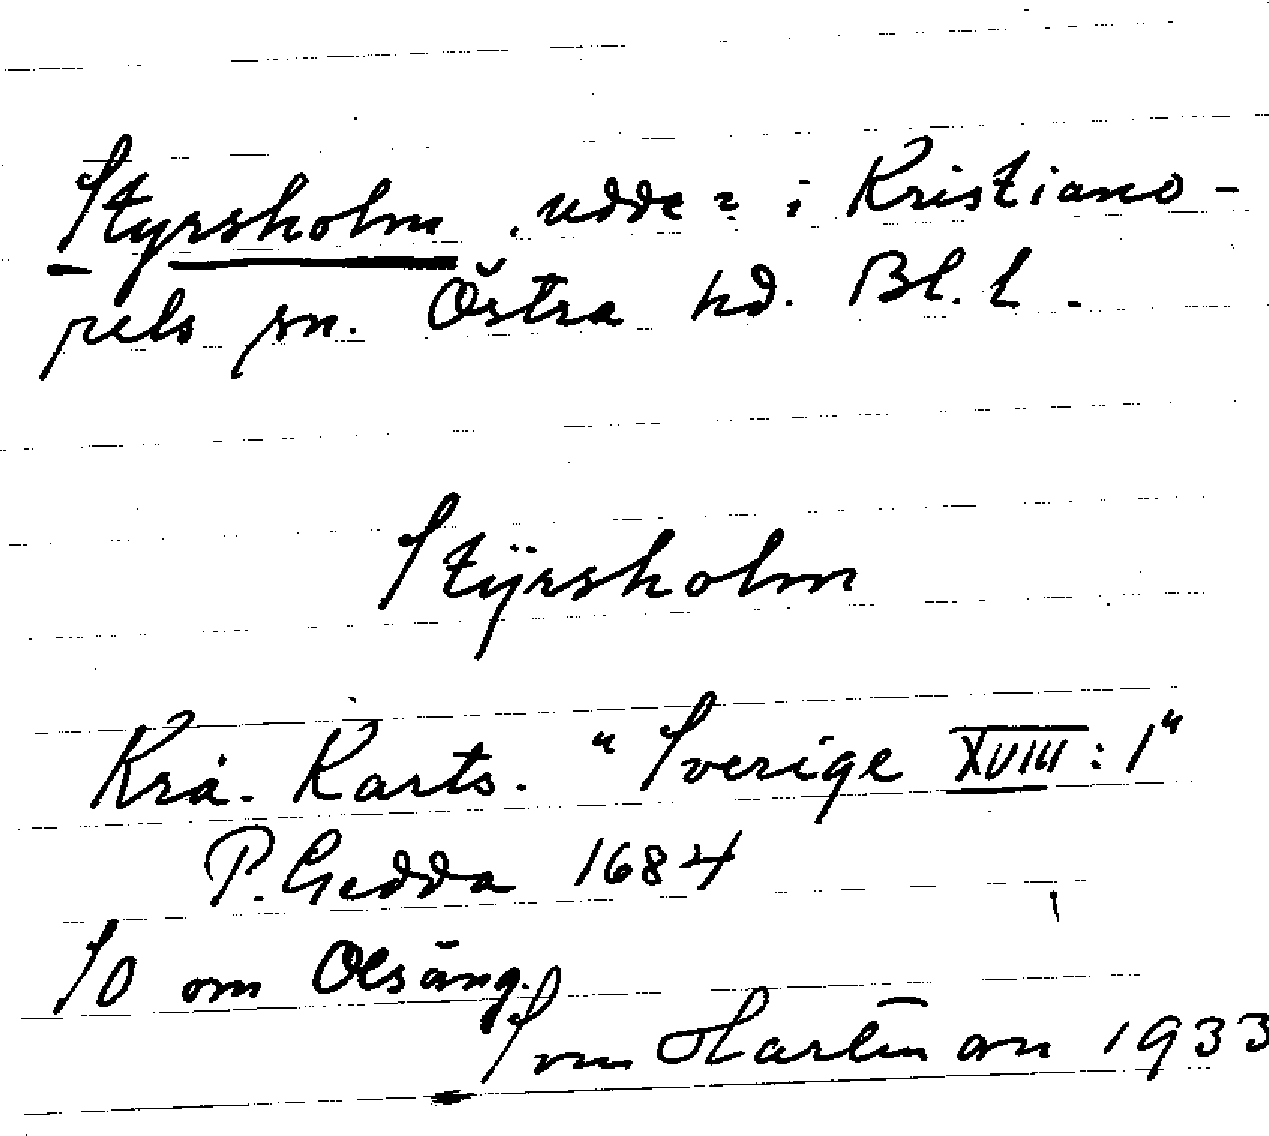 Styrsholm, udde? i Kristiano-
pels sn. Östra hd. Bl. l.
Stÿrsholm
Krå. Karts. "Sverige XVIII: 1"
P. Gedda 1684
SO om Olsäng.
Sven Hartman 1933